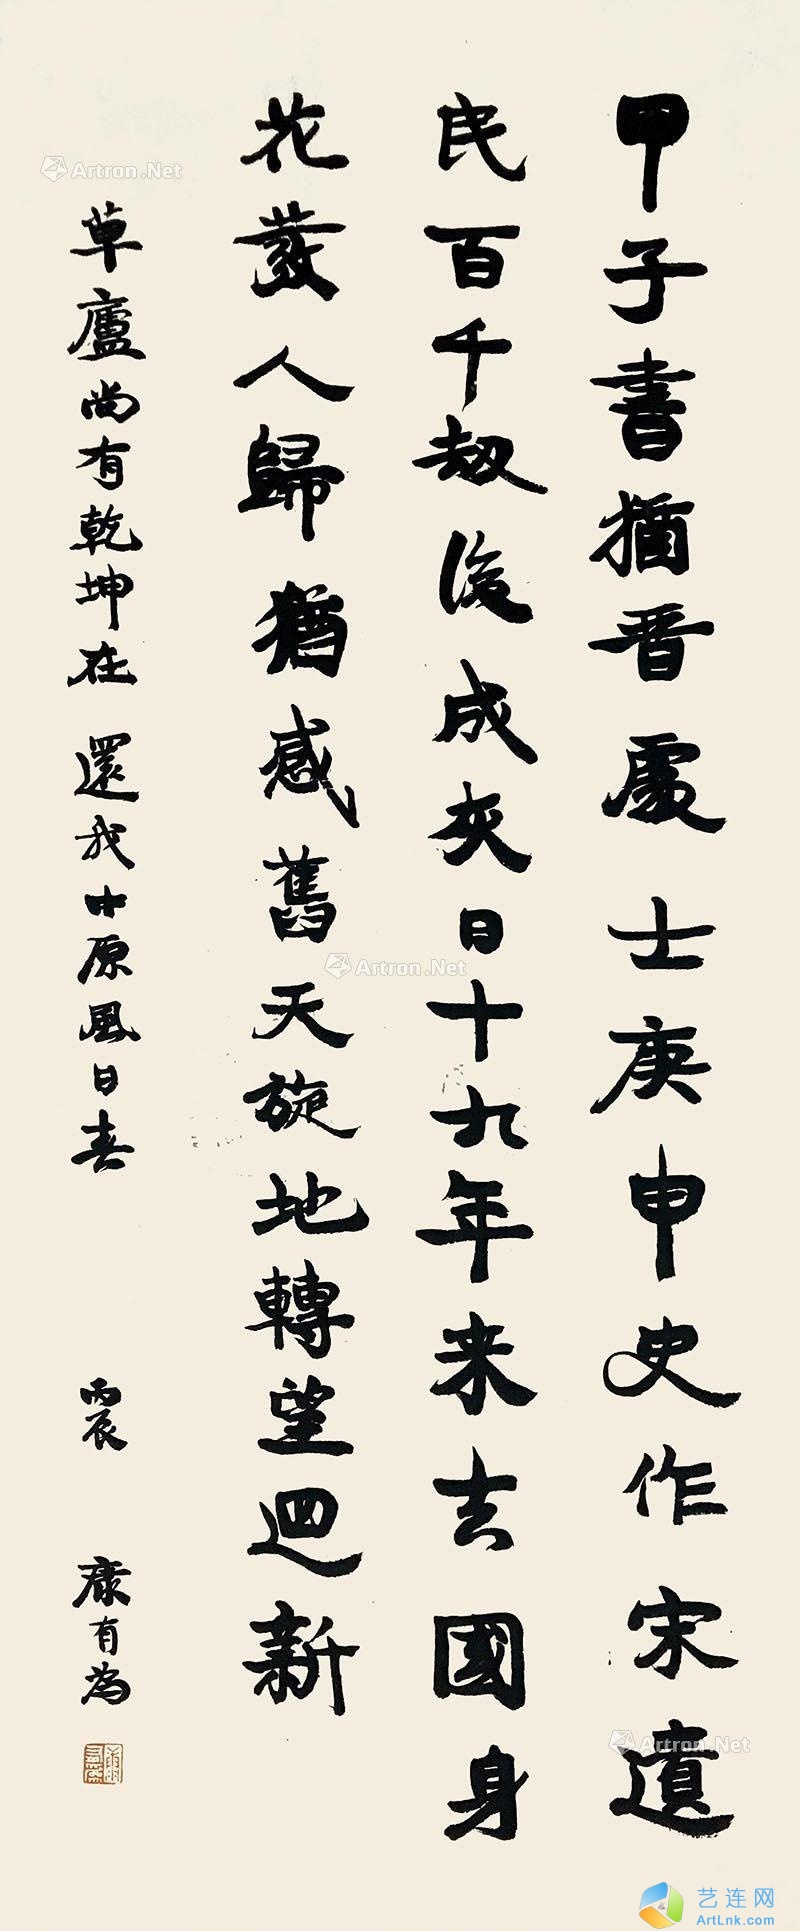 甲子書猶晋處士庚申史作宋遺
民百千劫後成灰日十九年来去國身
花發人歸猶感舊天旋地轉望迴新
草廬尚有乾坤在還我中原風日春
丙辰 康有為
Artron.Net
Artron.Net
Artron.Net
艺连网
ArtLnk.com